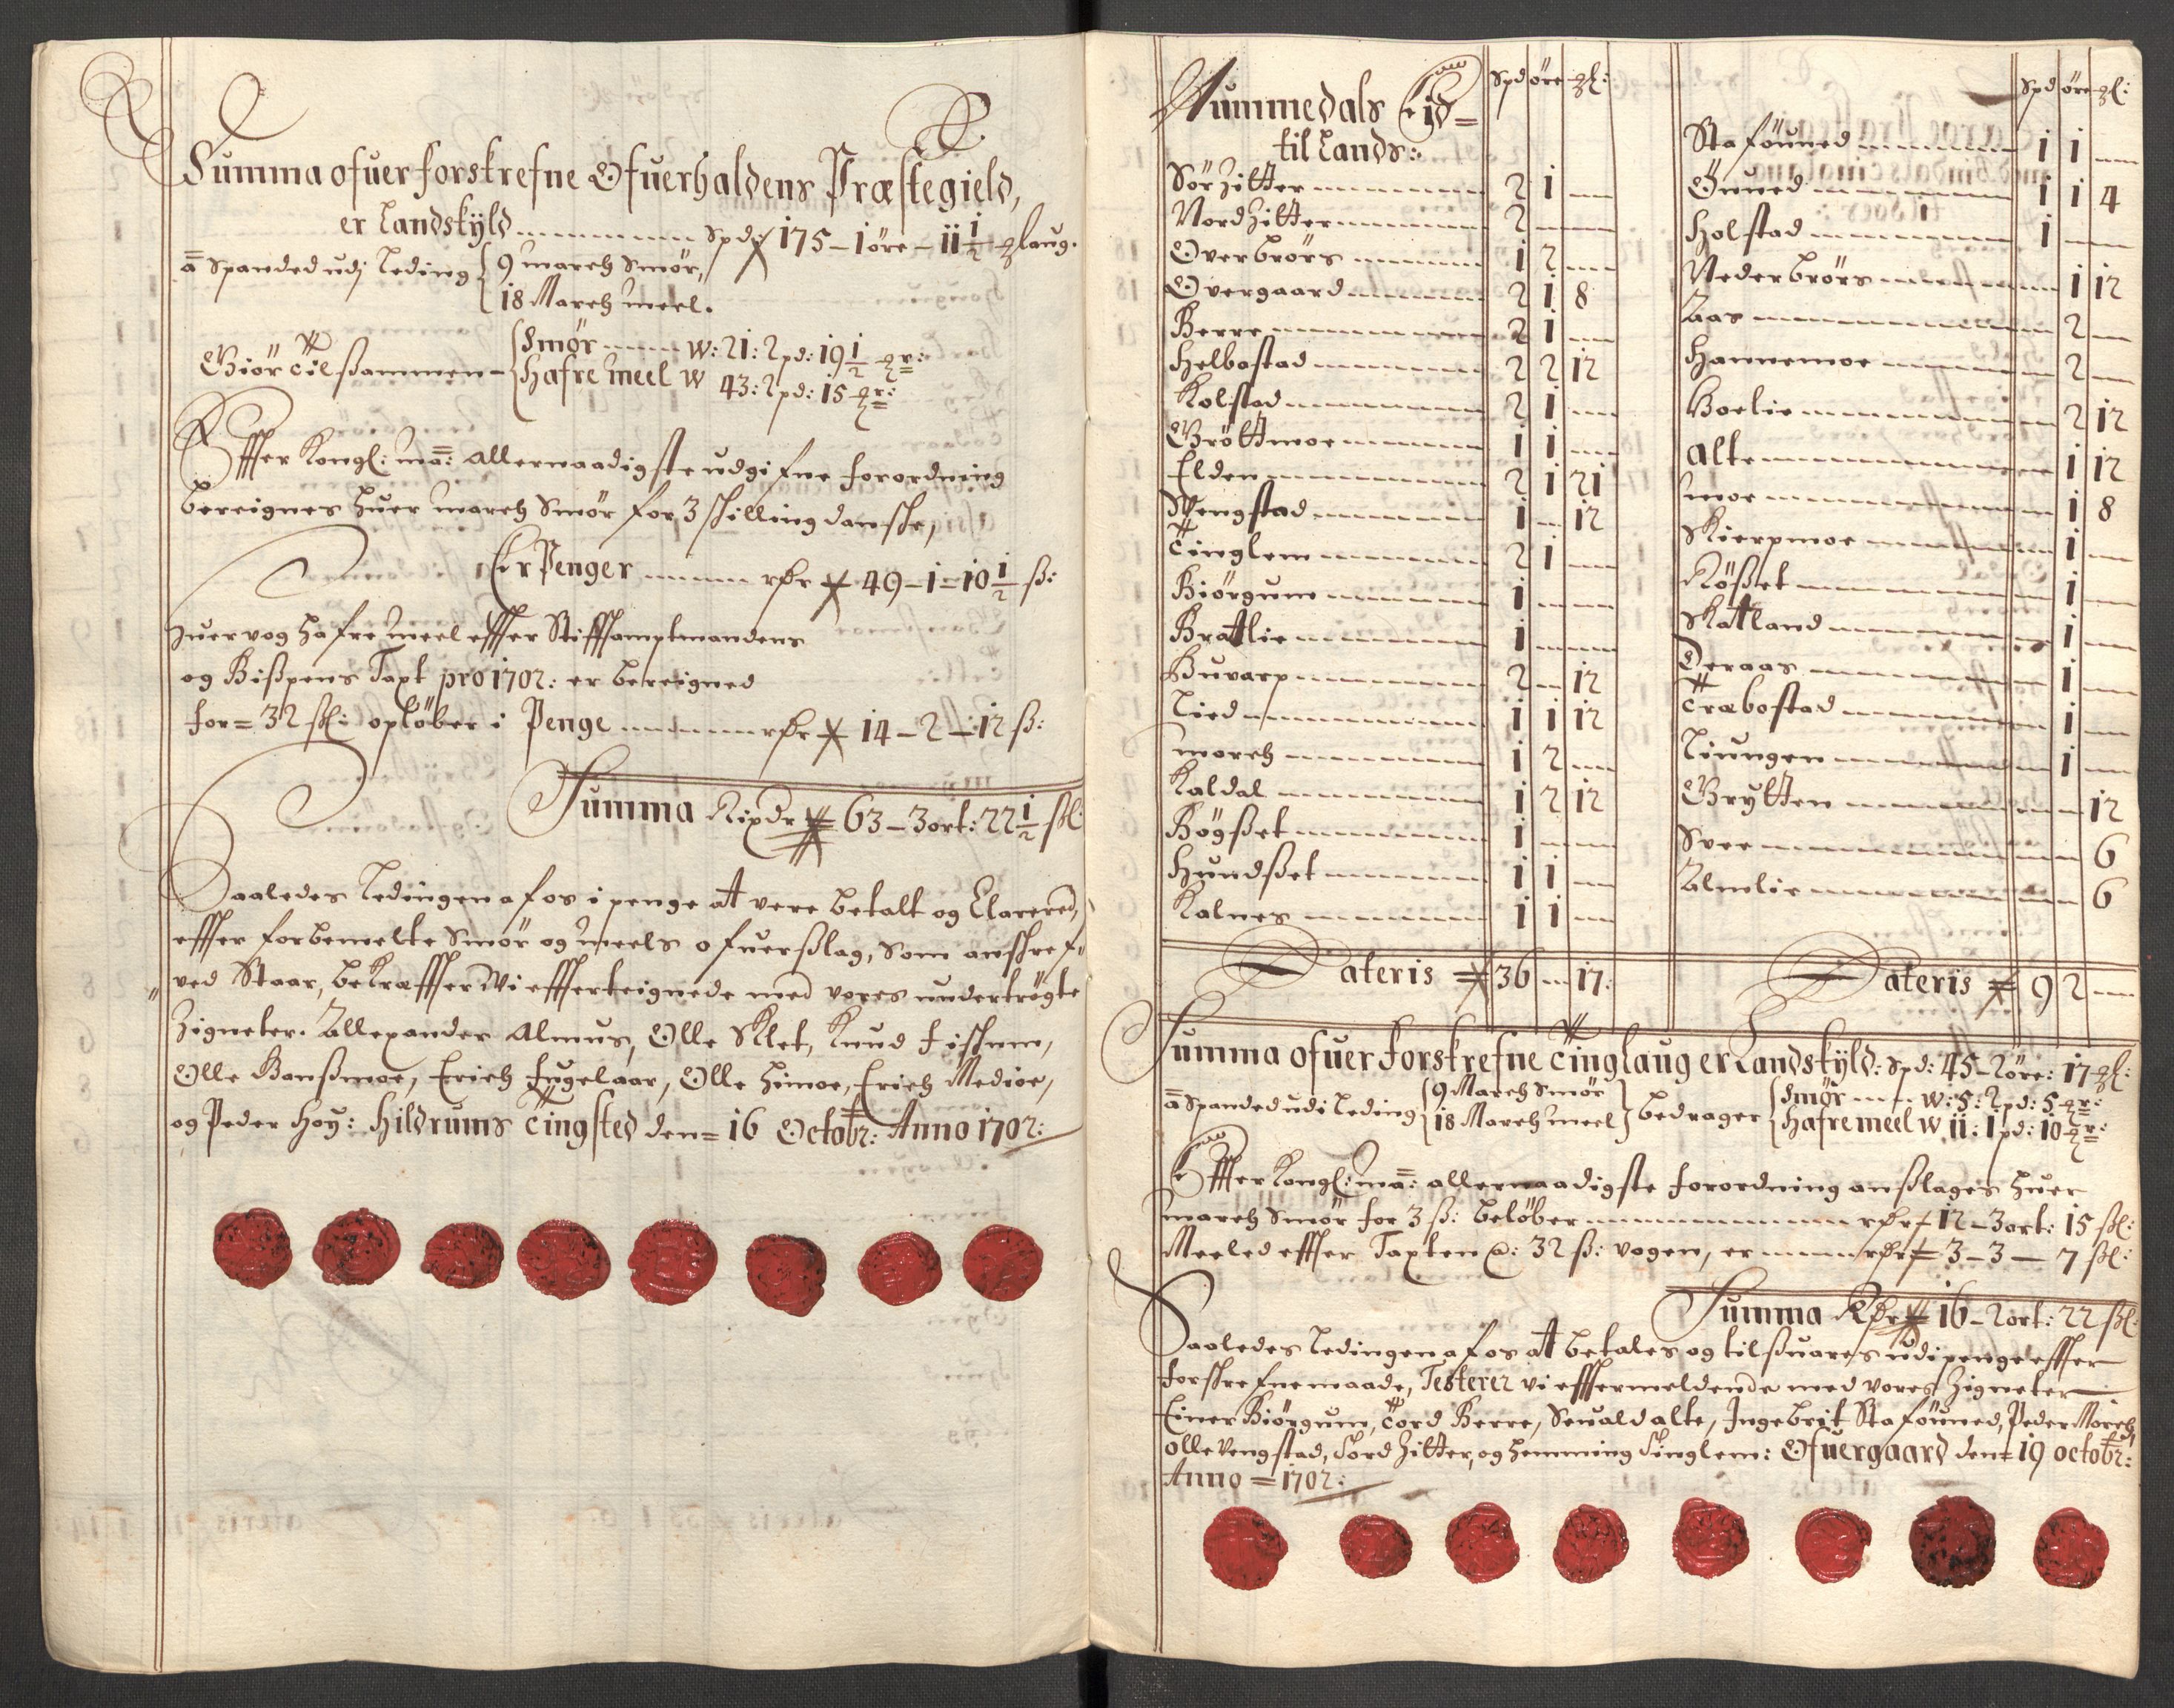 Summa ofuer forskrefne Ofuerhaldens Præstegield,
er Landskÿld ...... Spd: 175 – 1 öre – 11 1/2 ℔laug.
ā Spanded udj Leding { 9 march Smör,
18 March meel.
Giör tilsammen – { Smör ...... W: 21: 2 pd: 19 1/2 ℔r:
Hafre meel W 43: 2 pd: 15 ℔r:
Effter Kongl: Ma: allernaadigste udgifne forordning
bereignes huer march Smör for 3 skilling danske,
Er Penger ...... rdr 49 – 1 – 10 1/2 ß:
huer vog hafre meel effter Stifftsamptmandens
og Bispens Taxt pro 1702: er bereigned
for = 32 sk: oplöber i Penge ...... rdr 14 – 2 – 12 ß:
Summa Rixdr 63 – 3 ort: 22 1/2 sk:
Saaledes Ledingen af os i penge at vere betalt og Clarered,
effter forbemelte Smör og meels ofuerslag, som anskref-
ved Staar, bekræffter Wi effterteignede med vores undertrögte
Zigneter. Allexander Almus, Olle Sklet, Knud Fiskum,
Olle Banßmoe, Erich Fugelaar, Olle Himoe, Erich Medioe,
og Peder Hoy: Hildrums Tingsted den = 16 Octobr: Anno 1702:
Nummedals Eid=
til Lands:
Spd öre ℔l:
Sör Zitter ...... 2 1 —
Nord Zitter ...... 2 — —
Overbrörs ...... 1 2 —
Overgaard ...... 2 1 8
Berre ...... 2 1 —
Helbostad ...... 2 2 12
Kolstad ...... 2 1 —
Gröttmoe ...... 1 1 —
Elden ...... 2 1 21
Wengstad ...... 1 — 12
Tinglem ...... 2 1 —
Biörgum ...... 1 — —
Bratlie ...... 1 — —
Huvarp ...... 2 — 12
Lied ...... 1 1 12
morch ...... 1 2 —
Kaldal ...... 1 2 12
Bögßet ...... 1 — —
Hundßet ...... 1 1 —
Kalnes ...... 1 1 —
Lateris 36 — 17:
Spd öre ℔l:
Staföuned ...... 1 1 —
Önned ...... 1 1 4
Holstad ...... 1 — —
Nederbrörs ...... 1 12
Aas ...... 2 —
Hannemoe ...... 2 —
Boelie ...... 2 12
Alte ...... 1 12
moe ...... 1 8
Kierpmoe ...... 1 —
Rößet ...... 1 —
Skatland ...... 1 —
Deraas ...... 1 —
Træbostad ...... 1 —
Liungen ...... 1 —
Grytten ...... 12
Svee ...... 6
Almlie ...... 6
Lateris 9 2 —
Summa ofuer forskrefne Tinglaug er Landskÿld: Spd: 45 – 2 öre: 17 ℔l:
ā Spanded udi Leding { 9 March Smör
18 March meel } bedrager { Smör ...... W: 5: 2 pd: 5 ℔r:
Hafre meel W 11: 1 pd: 10 ℔r:
Effter Kongl: Ma: allernaadigste forordning anslages huer
march Smör for 3 ß: belöber ...... rdr 12 – 3 ort: 15 sk:
Meeled effter Taxten a: 32 ß: vogen, er ...... rdr 3 – 3 — 7 sk:
Summa Rdr 16 – 2 ort: 22 sk:
Saaledes Ledingen af os at betales og tilsuares udi penge effter
forskrefne maade, Testerer vi efftermeldende med vores Zigneter
Einer Biörgum, Tord Berre, Seuald alte, Ingebrit Staföuned, Peder Morch,
Olle Vengstad, Tord Zitter, og Hemming Tinglem: Ofuergaard den = 19 octobr:
Anno = 1702: